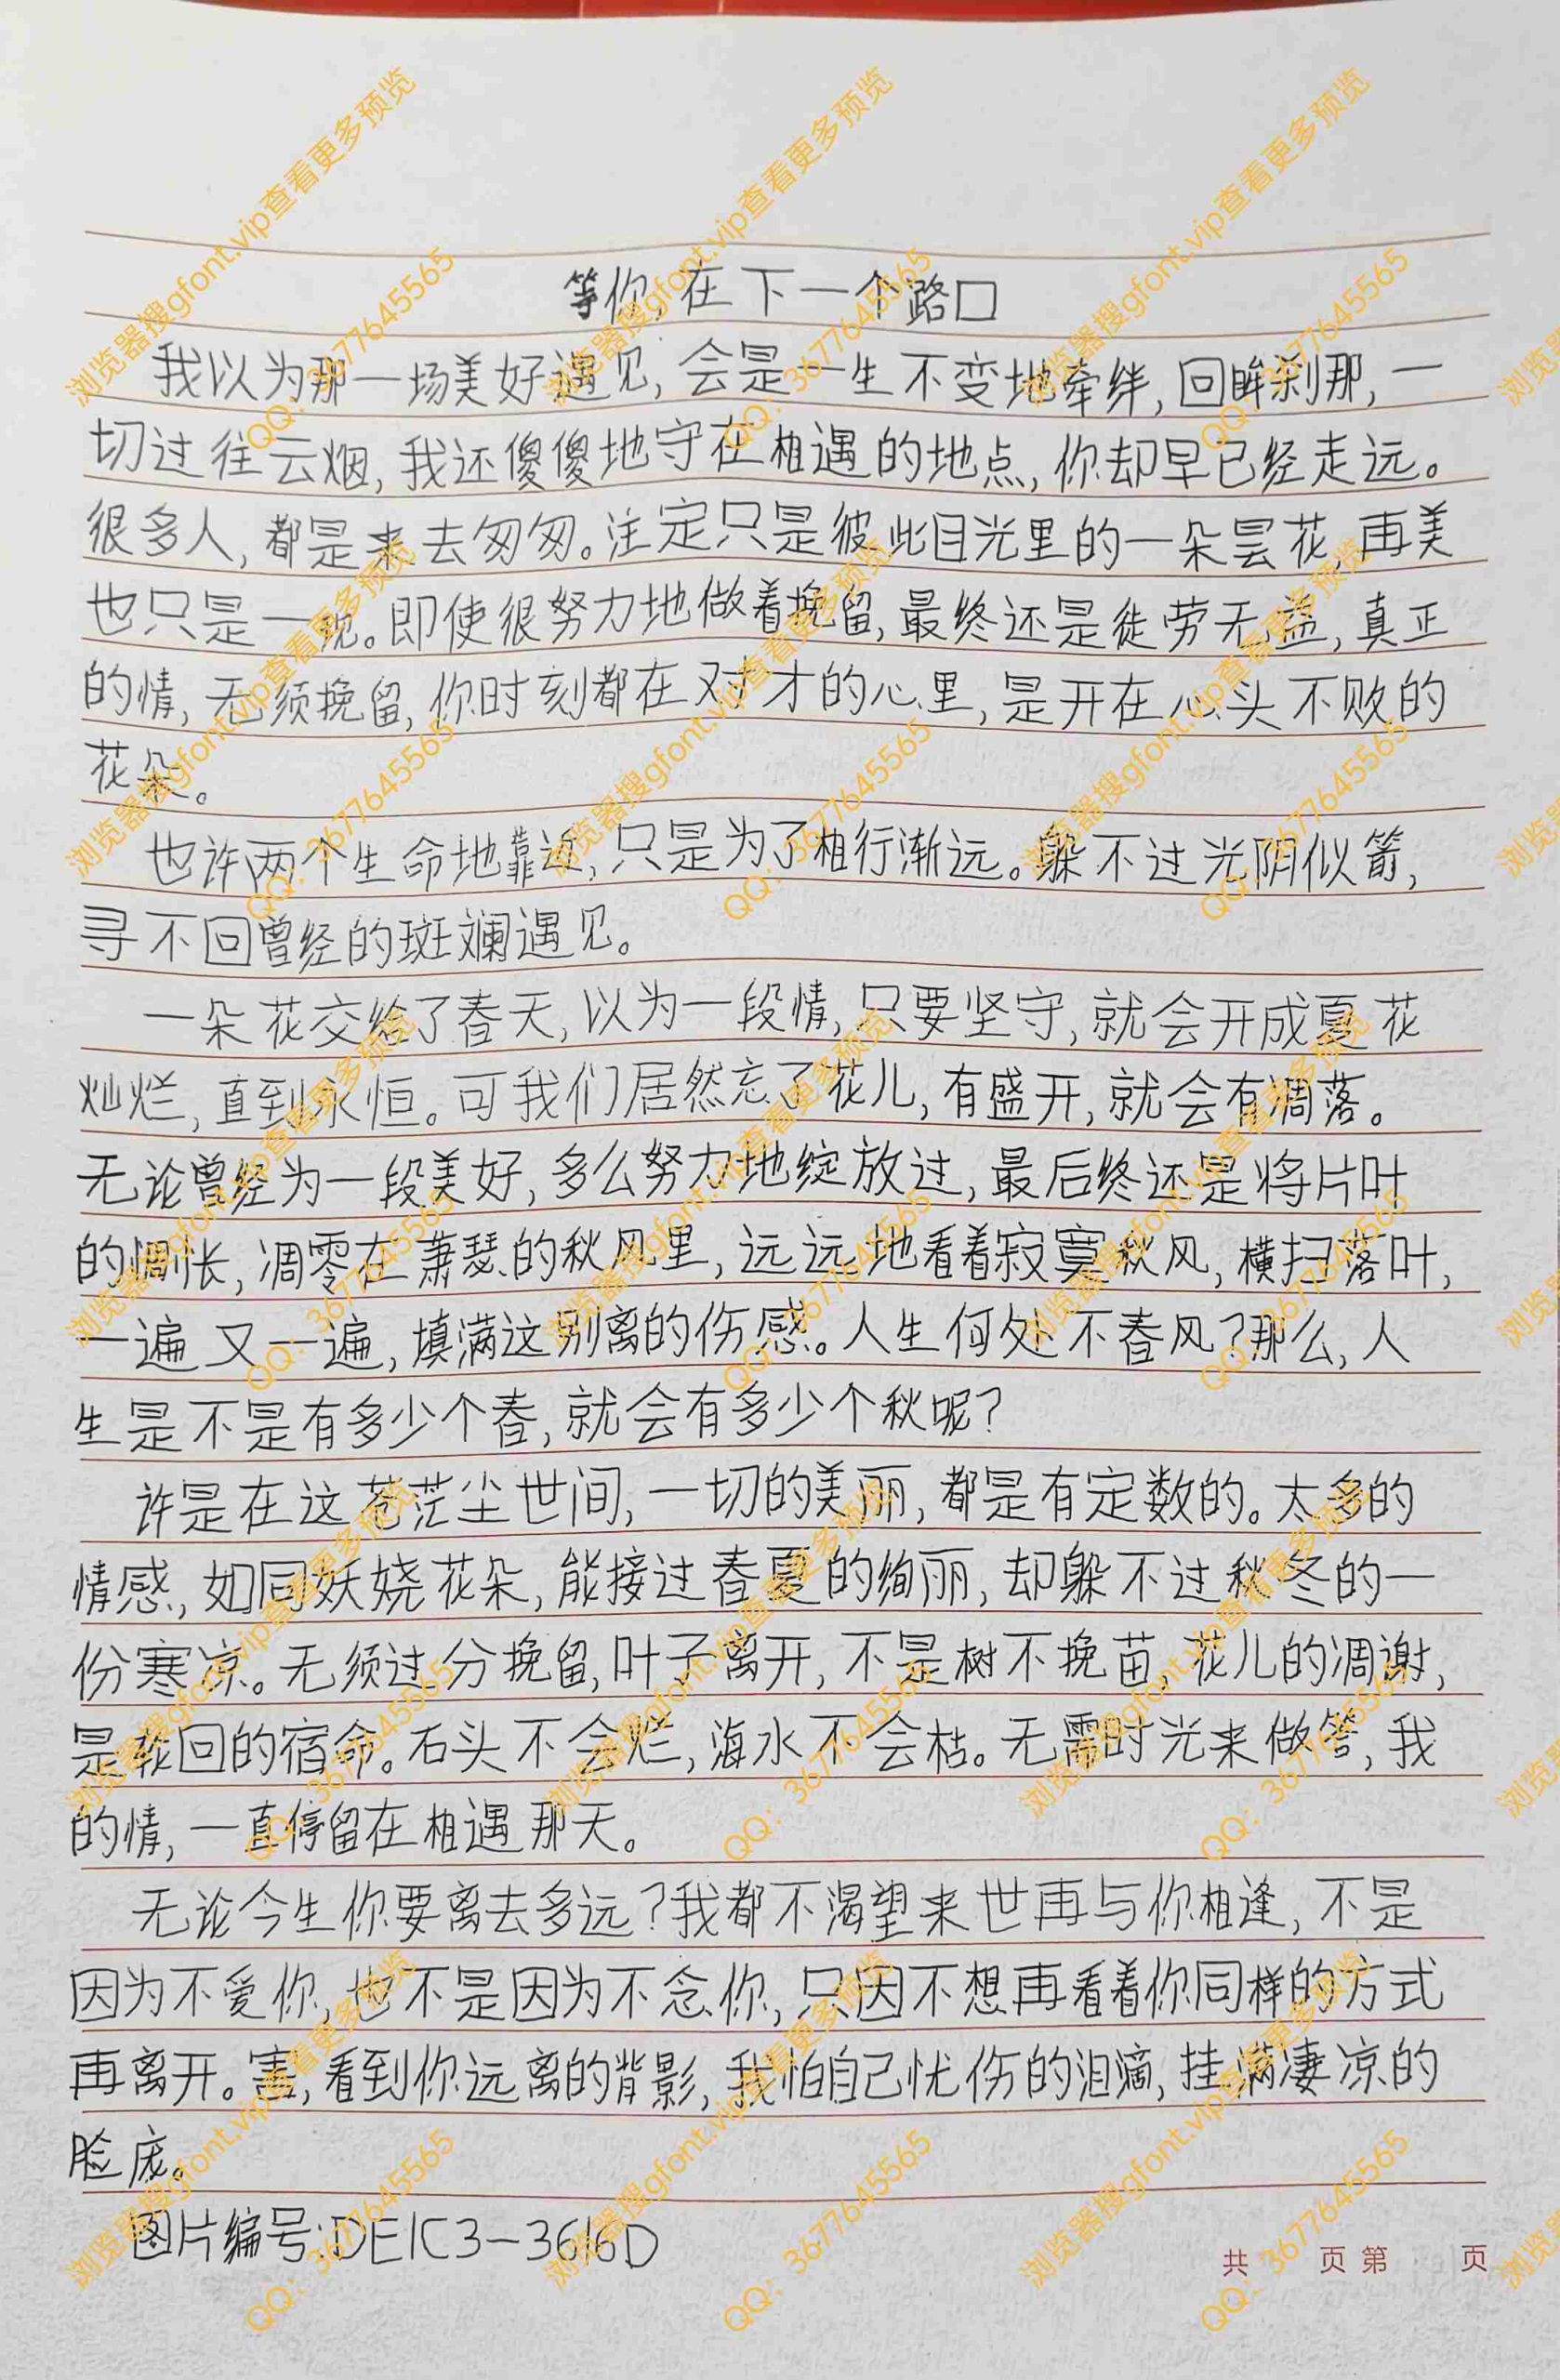 等你,在下一个路口
我以为那一场美好遇见,会是一生不变地牵绊,回眸刹那,一
切过往云烟,我还傻傻地守在相遇的地点,你却早已经走远。
很多人,都是来去匆匆。注定只是彼此目光里的一朵昙花,再美
也只是一现。即使很努力地做着挽留,最终还是徒劳无益,真正
的情,无须挽留,你时刻都在对才的心里,是开在心头不败的
花朵。
也许两个生命地靠近,只是为了相行渐远。躲不过光阴似箭,
寻不回曾经的斑斓遇见。
一朵花交给了春天,以为一段情,只要坚守,就会开成夏花
灿烂,直到永恒。可我们居然忘了花儿,有盛开,就会有凋落。
无论曾经为一段美好,多么努力地绽放过,最后终还是将片叶
的惆怅,凋零在萧瑟的秋风里,远远地看着寂寞秋风,横扫落叶,
一遍又一遍,填满这别离的伤感。人生何处不春风?那么,人
生是不是有多少个春,就会有多少个秋呢?
许是在这苍茫尘世间,一切的美丽,都是有定数的。太多的
情感,如同妖娆花朵,能接过春夏的绚丽,却躲不过秋冬的一
份寒凉。无须过分挽留,叶子离开,不是树不挽苗,花儿的凋谢,
是轮回的宿命。石头不会烂,海水不会枯。无需时光来做答,我
的情,一直停留在相遇那天。
无论今生你要离去多远?我都不渴望来世再与你相逢,不是
因为不爱你,也不是因为不念你,只因不想再看着你同样的方式
再离开。害,看到你远离的背影,我怕自己忧伤的泪滴,挂满凄凉的
脸庞。
图片编号:DE1C3-3616D
共 页 第 页
浏览器搜gfont.vip查看更多预览
QQ:3677645565